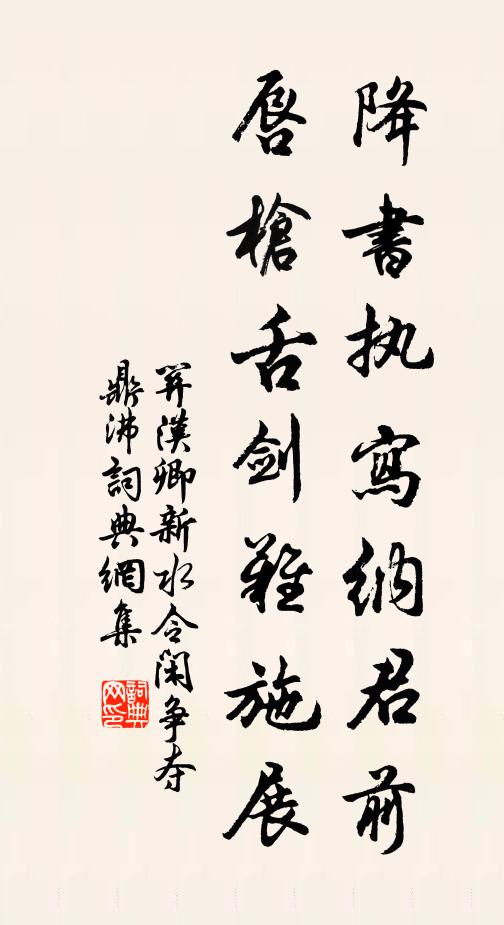 降書执寫納君前
唇槍舌剑難施展
関漢卿新水令閑争夺
鼎沸詞典網集
詞典
网印